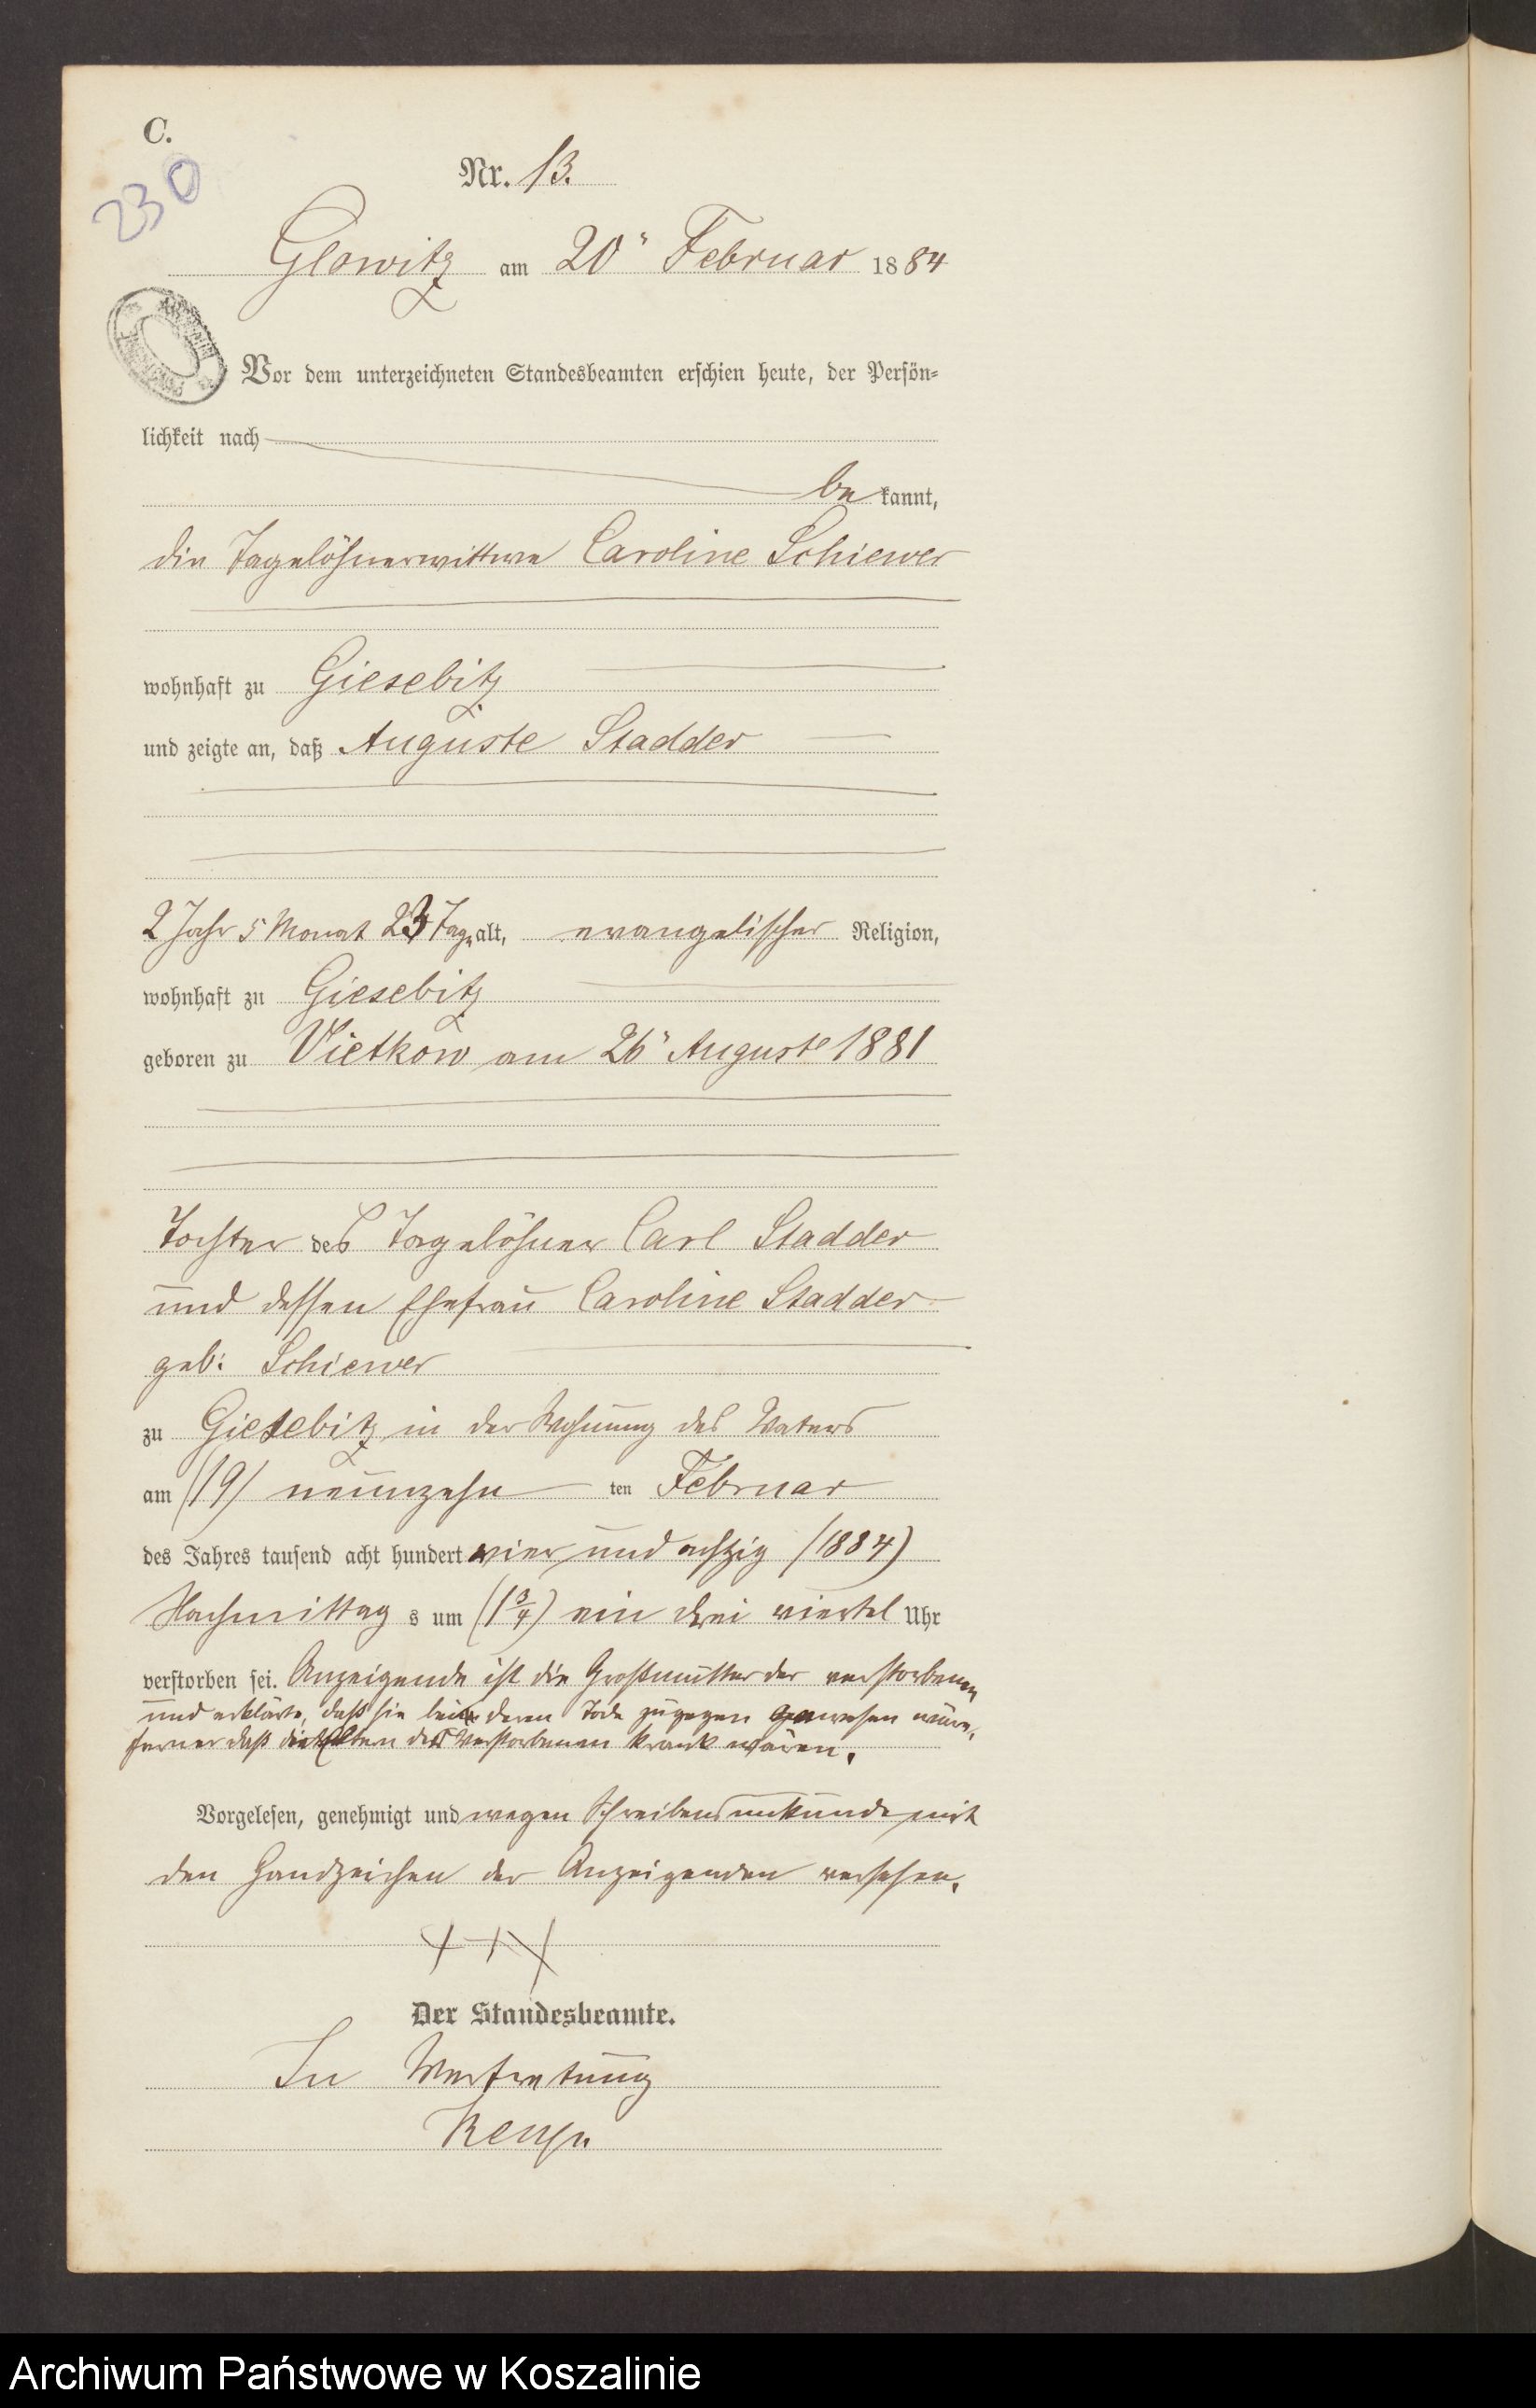 C.
230
Nr. 13.
Glowitz am 20" Februar 1884
Vor dem unterzeichneten Standesbeamten erschien heute, der Persön-
lichkeit nach
bekannt,
die Tagelöhnerwittwe Caroline Schiewer
wohnhaft zu Giesebitz
und zeigte an, daß Auguste Stadder
2 Jahr 5 Monat 23 Tage alt, evangelischer Religion,
wohnhaft zu Giesebitz
geboren zu Vietkow am 26" Auguste 1881
Tochter des Tagelöhner Carl Stadder
und dessen Ehefrau Caroline Stadder
geb: Schiewer
zu Giesebitz in der Wohnung des Vaters
am (19) neunzehn ten Februar
des Jahres tausend acht hundert vier und achtzig (1884)
Nachmittag s um (1 3/4) ein drei viertel Uhr
verstorben sei. Anzeigende ist die Großmutter der verstorbenen
und erklärte, daß sie bei deren Tode zugegen gewesen wäre,
ferner daß die Eltern der Verstorbenen krank wären.
Vorgelesen, genehmigt und wegen Schreibensunkunde mit
den Handzeichen der Anzeigenden versehen.
+++
Der Standesbeamte.
In Vertretung
Archiwum Państwowe w Koszalinie